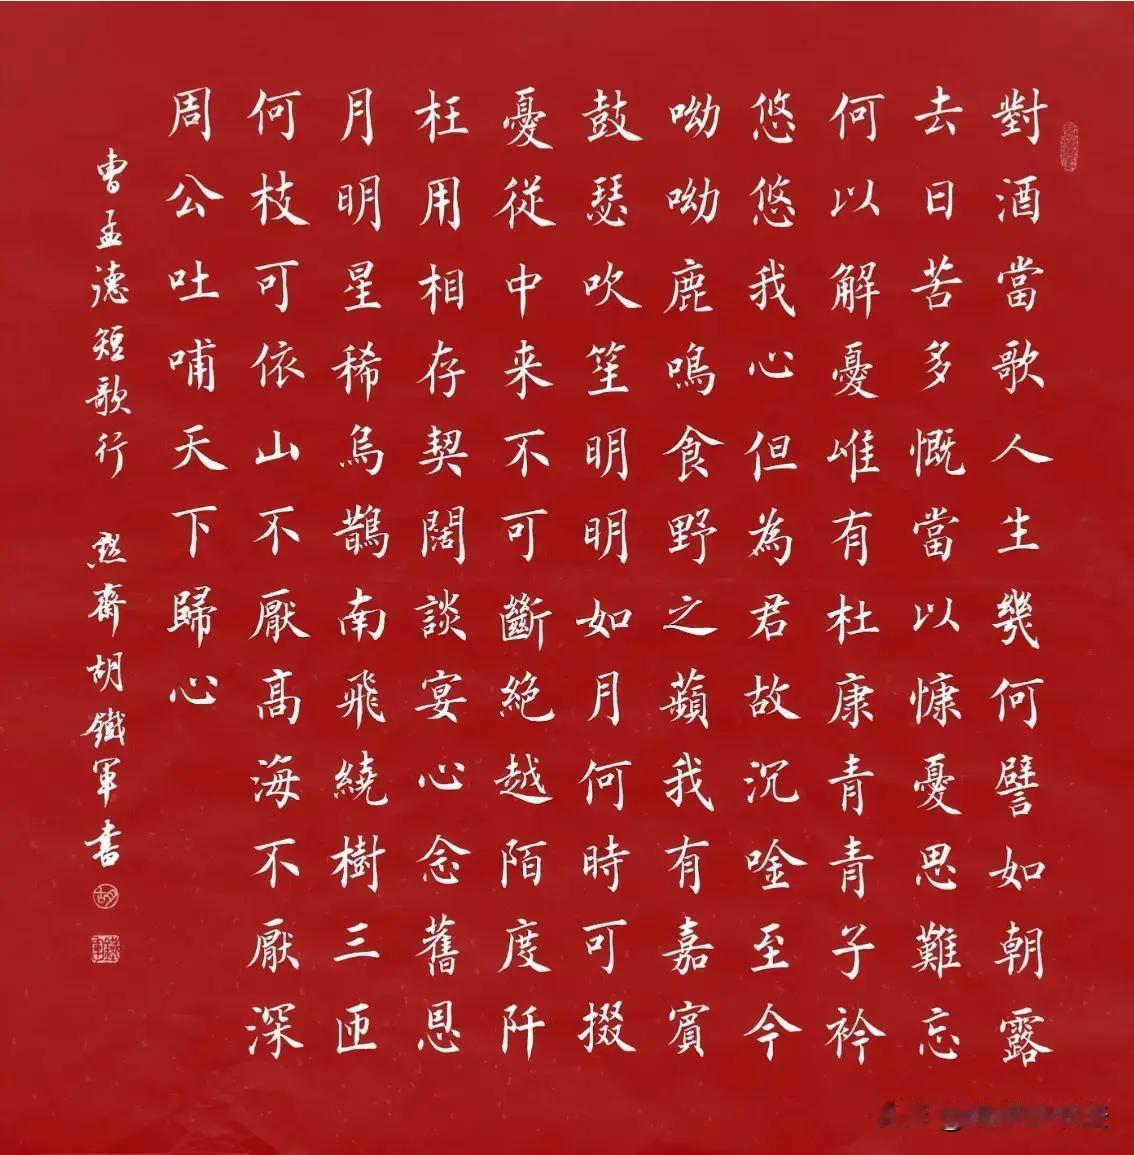 對酒當歌人生幾何譬如朝露
去日苦多慨當以慷憂思難忘
何以解憂唯有杜康青青子衿
悠悠我心但為君故沉唫至今
呦呦鹿鳴食野之蘋我有嘉賓
鼓瑟吹笙明明如月何時可掇
憂從中来不可斷絕越陌度阡
枉用相存契闊談宴心念舊恩
月明星稀烏鵲南飛繞樹三匝
何枝可依山不厭髙海不厭深
周公吐哺天下歸心
曹孟德短歌行 齋胡鐵軍書
胡
鐵軍